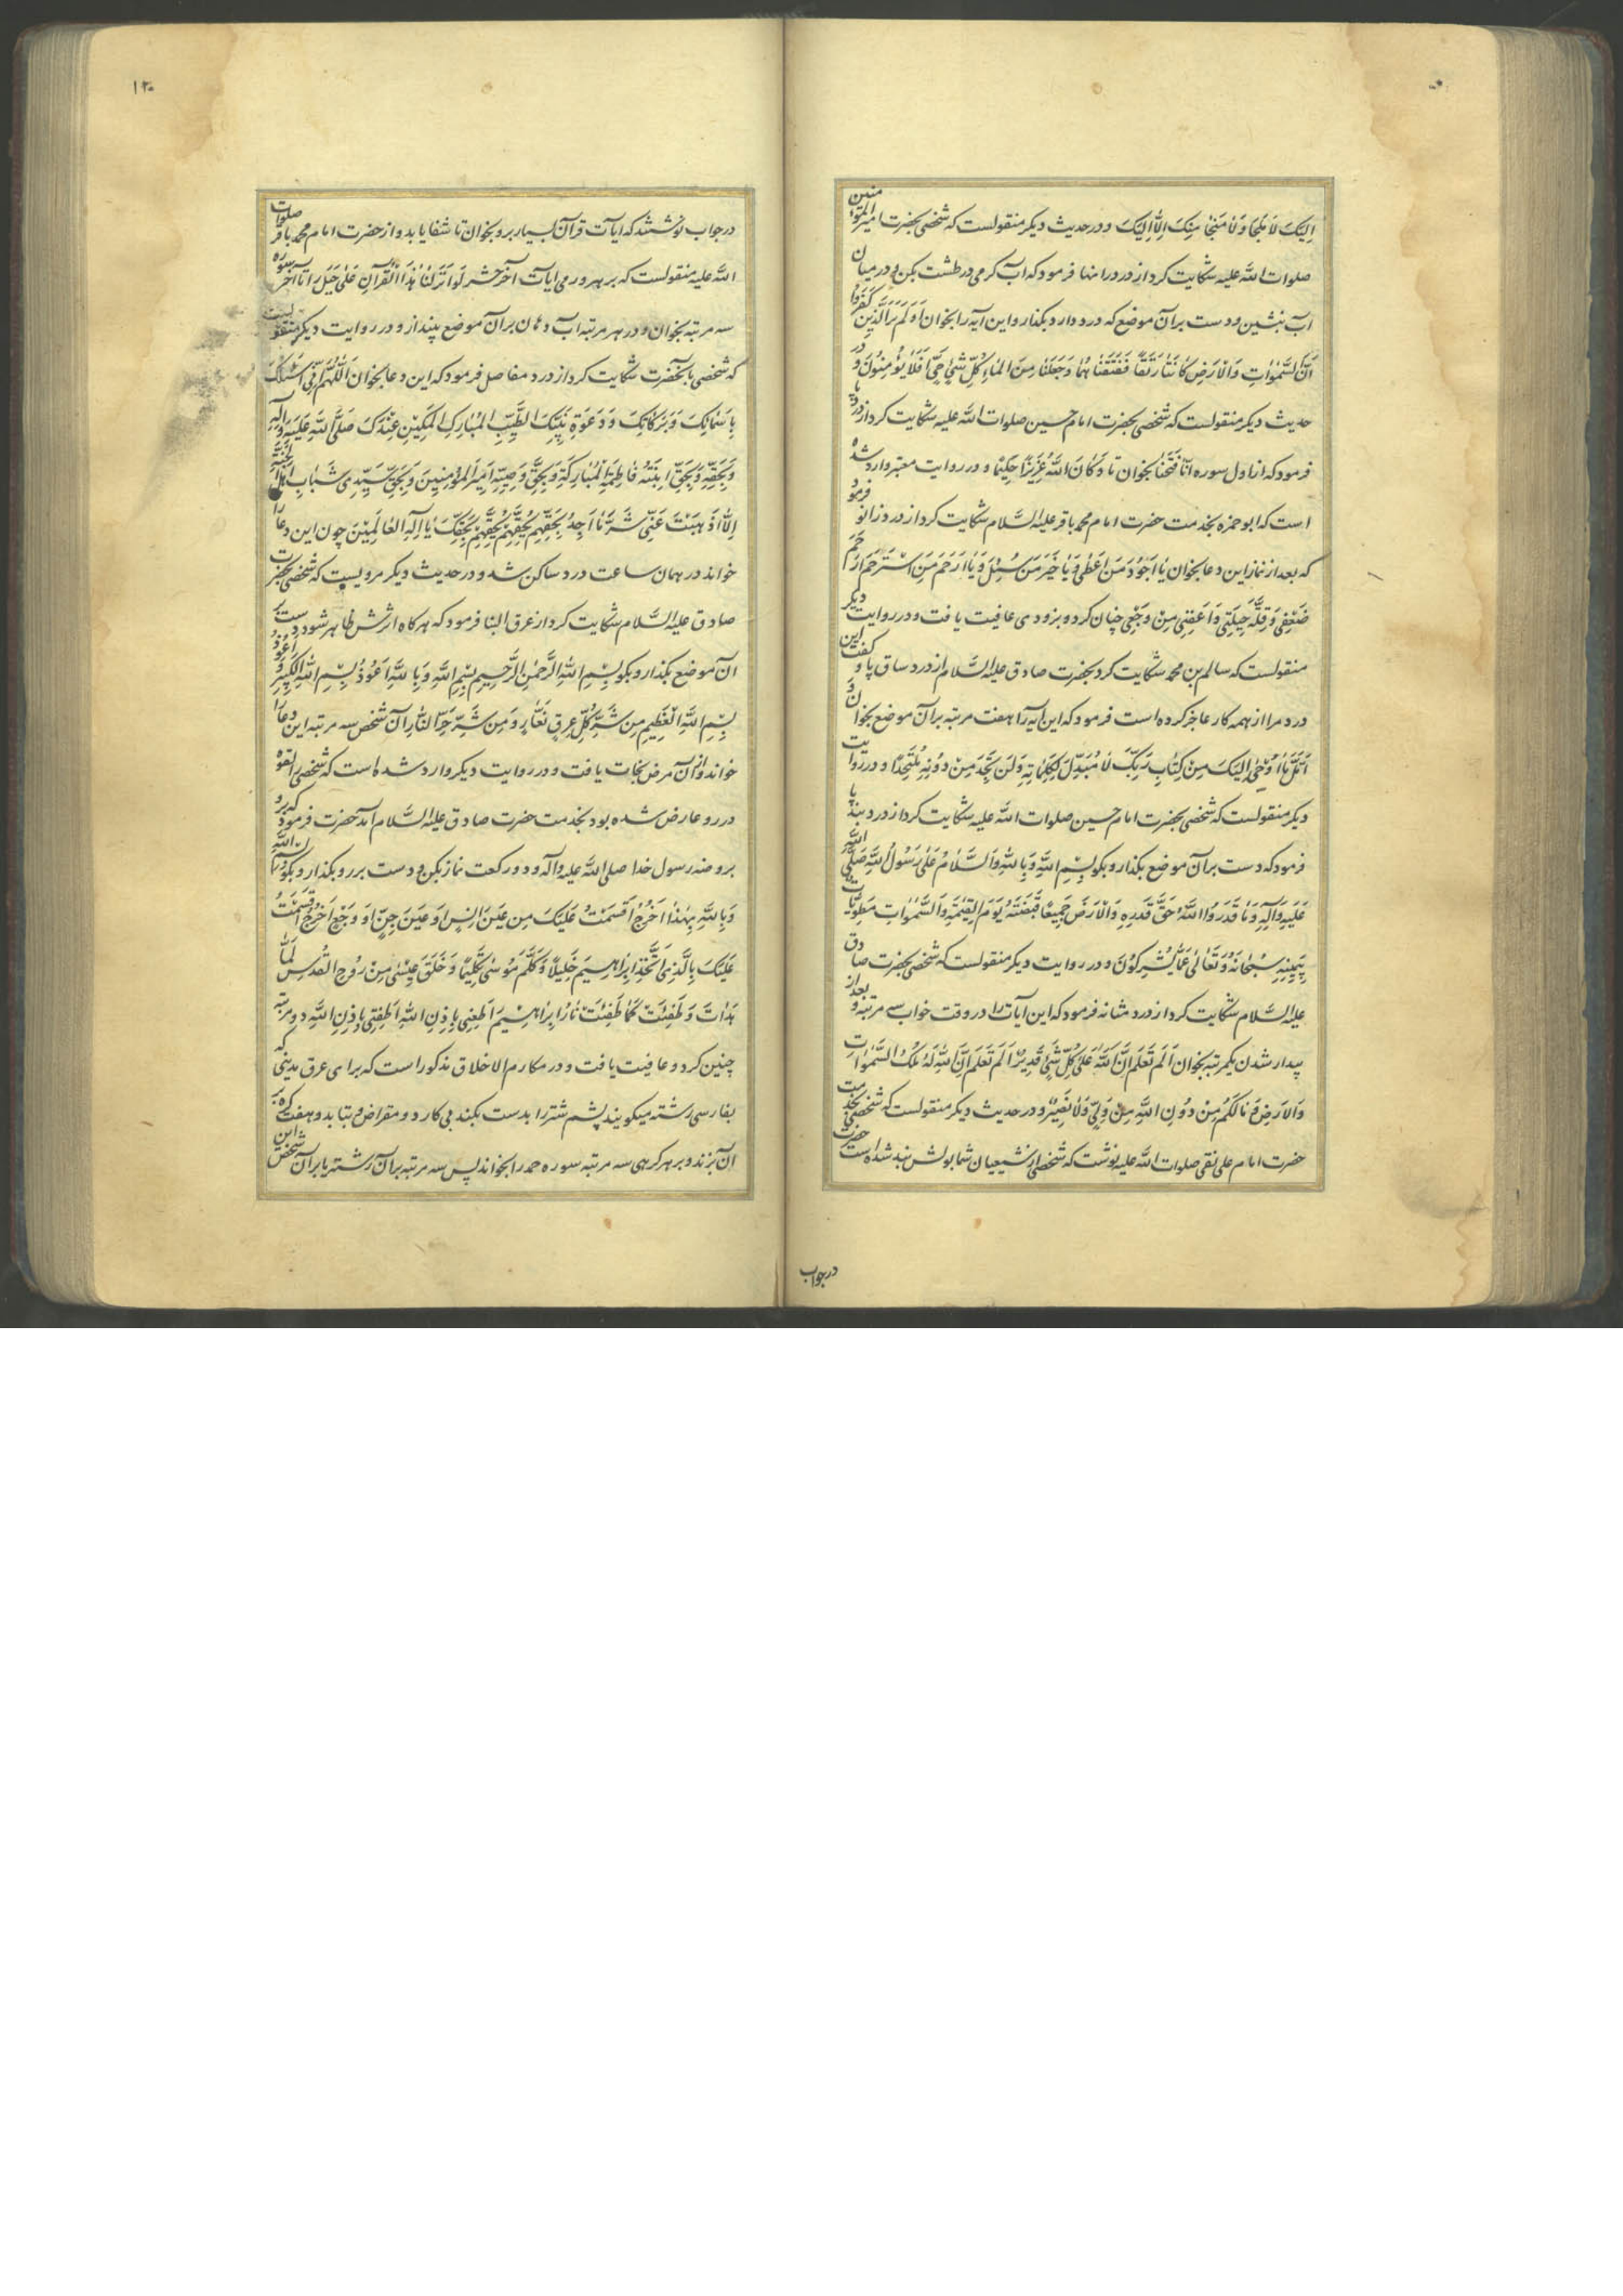 اِلَیْکَ لا مَلْجَا وَلا مَنْجا مِنْکَ اِلّا اِلَیْکَ و در حدیث دیکر منقولست که شخصی بحضرت امیر المؤمنین
صلوات الله علیه شکایت کرد از درد رانها فرمود که آب کرمی در طشت بکن و در میان
آب بنشین و دست بر آن موضع که درد دارد بکذار و این آیه را بخوان اَوَلَمْ یَرَ الَّذینَ کَفَرُوا
اَنَّ السَّمٰواتِ وَالْاَرْضَ کانَتا رَتْقاً فَفَتَقْناهُما وَجَعَلْنا مِنَ الْماءِ کُلَّ شَیْءٍ حَیٍّ اَفَلا یُؤْمِنُونَ و در
حدیث دیکر منقولست که شخصی بحضرت امام حسین صلوات الله علیه شکایت کرد از درد پا
فرمود که از اول سوره اِنّا فَتَحْنا بخوان تا وَکانَ اللهُ عَزیزاً حَکیماً و در روایت معتبر وارد شده
است که ابو حمزه بخدمت حضرت امام محمد باقر علیه السّلام شکایت کرد از درد زانو فرمود
که بعد از نماز این دعا بخوان یا اَجْوَدَ مَنْ اَعْطی وَیا خَیْرَ مَنْ سُئِلَ وَیا اَرْحَمَ مَنِ اسْتُرْحِمَ اِرْحَمْ
ضَعْفی وَقِلَّةَ حیلَتی وَاَعْفِنی مِنْ وَجَعی چنان کرد و بزودی عافیت یافت و در روایت دیکر
منقولست که سالم بن محمد شکایت کرد بحضرت صادق علیه السّلام از درد ساق پا و کفت این
درد مرا از همه کار عاجز کرده است فرمود که این آیه را هفت مرتبه بر آن موضع بخوان وَ
اتْلُ ما اُوحِیَ اِلَیْکَ مِنْ کِتابِ رَبِّکَ لا مُبَدِّلَ لِکَلِماتِهِ وَلَنْ تَجِدَ مِنْ دُونِهِ مُلْتَحَداً و در روایت
دیکر منقولست که شخصی بحضرت امام حسین صلوات الله علیه شکایت کرد از درد بند پا
فرمود که دست بر آن موضع بکذار و بکو بِسْمِ اللهِ وَبِاللهِ وَالسَّلامُ عَلی رَسُولِ اللهِ صَلَّی الله
عَلَیْهِ وَآلِهِ وَما قَدَرُوا اللهَ حَقَّ قَدْرِهِ وَالْاَرْضُ جَمیعاً قَبْضَتُهُ یَوْمَ الْقِیٰمَةِ وَالسَّمٰواتُ مَطْوِیّاتٌ
بِیَمینِهِ سُبْحانَهُ وَتَعالی عَمّا یُشْرِکُونَ و در روایت دیکر منقولست که شخصی بحضرت صادق
علیه السّلام شکایت کرد از درد مثانه فرمود که این آیات را در وقت خواب سه مرتبه و بعد از
بیدار شدن یکمرتبه بخوان اَلَمْ تَعْلَمْ اَنَّ اللهَ عَلی کُلِّ شَیْءٍ قَدیرٌ اَلَمْ تَعْلَمْ اَنَّ اللهَ لَهُ مُلْکُ السَّمٰواتِ
وَالْاَرْضِ وَما لَکُمْ مِنْ دُونِ اللهِ مِنْ وَلِیٍّ وَلا نَصیرٍ و در حدیث دیکر منقولست که شخصی بخدمت
حضرت امام علی نقی صلوات الله علیه نوشت که شخصی از شیعیان شما بولش بند شده است حضرت
در جواب
۱۲۰
در جواب نوشتند که ایات قرآن بسیار برو بخوان تا شفا یابد و از حضرت امام محمد باقر صلوات
الله علیه منقولست که بر هر ورمی ایات آخر حشر لَوْ اَنْزَلْنا هٰذَا الْقُرْآنَ عَلی جَبَلٍ را تا آخر سوره
سه مرتبه بخوان و در هر مرتبه آب دهان بر آن موضع بینداز و در روایت دیکر منقولست
که شخصی بآنحضرت شکایت کرد از درد مفاصل فرمود که این دعا بخوان اَللّٰهُمَّ اِنّی اَسْئَلُکَ
بِاَسْمائِکَ وَبَرَکاتِکَ وَدَعْوَةِ نَبِیِّکَ الطَّیِّبِ الْمُبارَکِ الْمَکینِ عِنْدَکَ صَلَّی اللهُ عَلَیْهِ وَآلِهِ
وَبِحَقِّهِ وَبِحَقِّ ابْنَتِهِ فاطِمَةَ الْمُبارَکَةِ وَبِحَقِّ وَصِیِّهِ اَمیرِ الْمُؤْمِنینَ وَبِحَقِّ سَیِّدَیْ شَبابِ اَهْلِ الْجَنَّةِ
اِلّا اَذْهَبْتَ عَنّی شَرَّ ما اَجِدُ بِحَقِّهِمْ بِحَقِّهِمْ بِحَقِّهِمْ بِحَقِّکَ یا اِلٰهَ الْعالَمینَ چون این دعا را
خواند در همان ساعت درد ساکن شد و در حدیث دیکر مرویست که شخصی بحضرت
صادق علیه السّلام شکایت کرد از عرق النسا فرمود که هر کاه اثرش ظاهر شود دست بر
آن موضع بکذار و بکو بِسْمِ اللهِ الرَّحْمٰنِ الرَّحیمِ بِسْمِ اللهِ وَبِاللهِ اَعُوذُ بِسْمِ اللهِ الْکَبیرِ وَ اَعُوذُ
بِسْمِ اللهِ الْعَظیمِ مِنْ شَرِّ کُلِّ عِرْقٍ نَعّارٍ وَمِنْ شَرِّ حَرِّ النّارِ آن شخص سه مرتبه این دعا را
خواند و از آن مرض نجات یافت و در روایت دیکر وارد شده است که شخصی را لقوه
در رو عارض شده بود بخدمت حضرت صادق علیه السّلام آمد حضرت فرمود که برو
بروضه رسول خدا صلی الله علیه و آله و دو رکعت نماز بکن و دست بر رو بکذار و بکو بسم الله
وَبِاللهِ بِهٰذا اُخْرُجْ اَقْسَمْتُ عَلَیْکَ مِنْ عَیْنِ اِنْسٍ اَوْ عَیْنِ جِنٍّ اَوْ وَجَعٍ اُخْرُجْ اَقْسَمْتُ
عَلَیْکَ بِالَّذِی اتَّخَذَ اِبْراهیمَ خَلیلاً وَکَلَّمَ مُوسی تَکْلیماً وَخَلَقَ عیسی مِنْ رُوحِ الْقُدُسِ لَمّا
هَدَأْتَ وَطَفِئْتَ کَما طَفِئَتْ نارُ اِبْراهیمَ اِطْفَئی بِاِذْنِ اللهِ اِطْفَئی بِاِذْنِ اللهِ دو مرتبه
چنین کرد و عافیت یافت و در مکارم الاخلاق مذکور است که برای عرق مدینی که
بفارسی رشته میکویند پشم شتر را بدست بکند بی کارد و مقراض و بتابد و هفت کره بر
آن بزند و بر هر کرهی سه مرتبه سوره حمد را بخواند پس سه مرتبه بر آن رشته یا بر آن شخص این